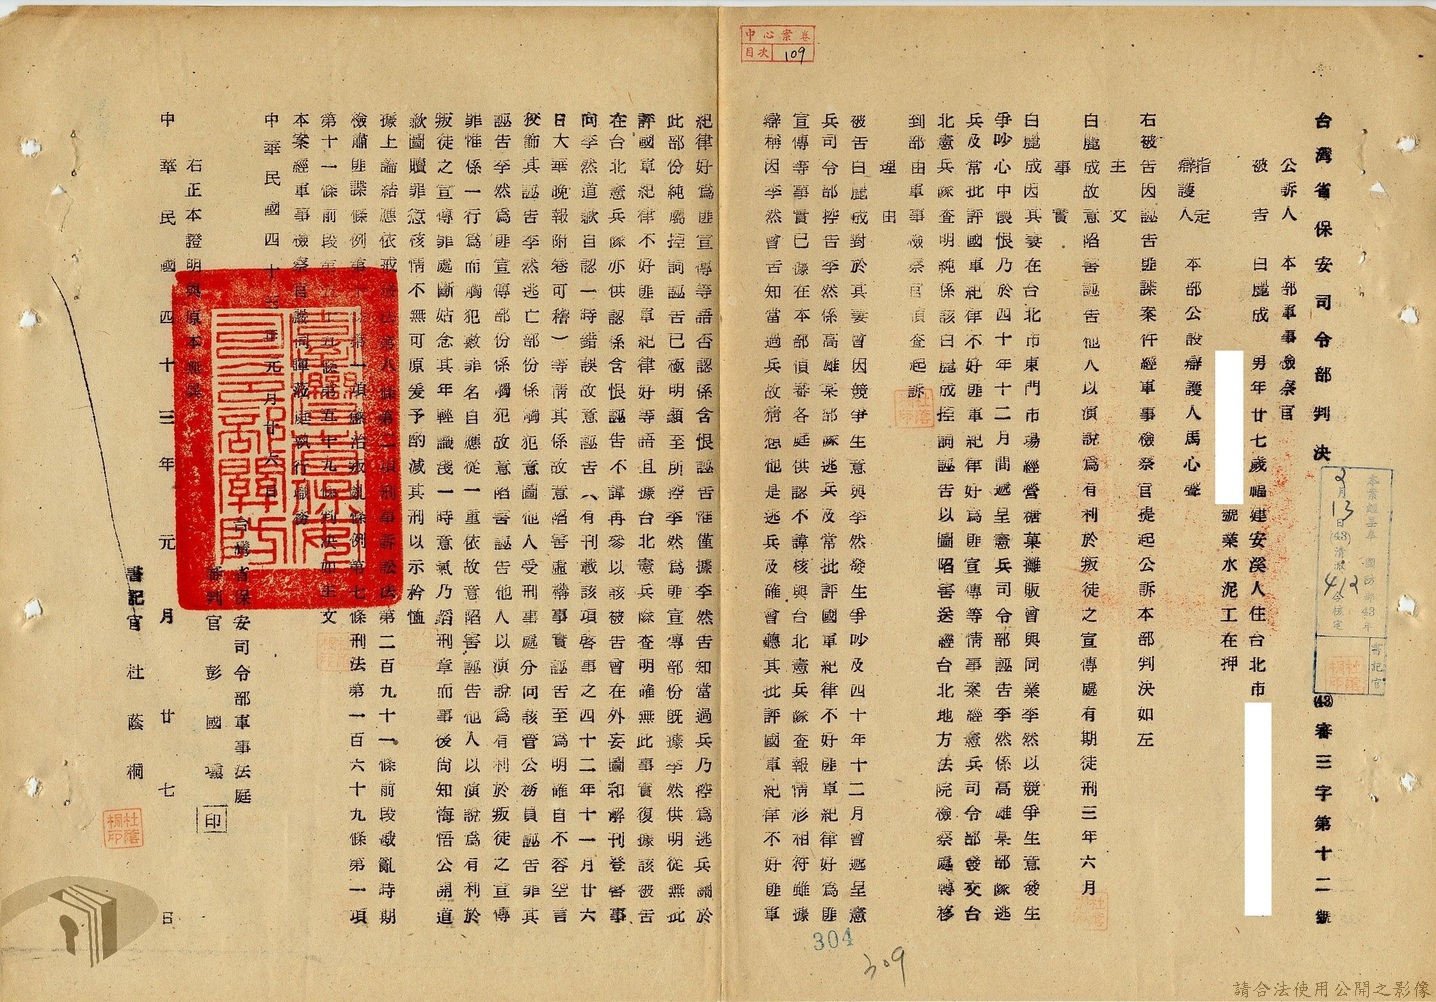 中心案卷
目次 109
台灣省保安司令部判決 (43)審三字第十二號
公訴人 本部軍事檢察官
被告 白麗成 男年廿七歲福建安溪人住台北市
號業水泥工在押
指定辯護人 本部公設辯護人馬心聲
右被告因誣告匪諜案件經軍事檢察官提起公訴本部判決如左
主文
白麗成故意陷害誣告他人以演說為有利於叛徒之宣傳處有期徒刑三年六月
事實
白麗成因其妻在台北市東門市場經營糖菓攤販曾與同業李然以競爭生意發生
爭吵心中懷恨乃於四十年十二月間遞呈憲兵司令部誣告李然係高雄某部隊逃
兵及常批評國軍紀律不好匪軍紀律好為匪宣傳等情事案經憲兵司令部發交台
北憲兵隊查明純係該白麗成控詞誣告以圖陷害送經台北地方法院檢察處轉移
到部由軍事檢察官偵查起訴
理由
被告白麗成對於其妻曾因競爭生意與李然發生爭吵及四十年十二月曾遞呈憲
兵司令部控告李然係高雄某部隊逃兵及常批評國軍紀律不好匪軍紀律好為匪
宣傳等事實已據在本部偵審各庭供認不諱核與台北憲兵隊查報情形相符雖據
辯稱因李然曾告知當過兵故猜想他是逃兵及確曾聽其批評國軍紀律不好匪軍
紀律好為匪宣傳等語否認係含恨誣告惟僅據李然告知當過兵乃控為逃兵關於
此部份純屬控詞誣告已極明顯至所控李然為匪宣傳部份既據李然供明從無此
評國軍紀律不好匪軍紀律好等語且據台北憲兵隊查明確無此事實復據該被告
在台北憲兵隊亦供認係含恨誣告不諱再參以該被告曾在外妄圖和解刊登啓事
向李然道歉自認一時錯誤故意誣告（有刊載該項啓事之四十二年十一月廿六
日大華晚報附卷可稽）等情其係故意陷害虛構事實誣告至為明確自不容空言
狡飾其誣告李然逃亡部份係觸犯意圖他人受刑事處分向該管公務員誣告罪其
誣告李然為匪宣傳部份係觸犯故意陷害誣告他人以演說為有利於叛徒之宣傳
罪惟係一行為而觸犯數罪名自應從一重依故意陷害誣告他人以演說為有利於
叛徒之宣傳罪處斷姑念其年輕識淺一時意氣乃蹈刑章而事後尚知悔悟公開道
歉圖贖罪愆核情不無可原爰予酌減其刑以示矜恤
據上論結應依戒嚴法第八條第二項刑事訴訟法第二百九十一條前段戡亂時期
檢肅匪諜條例第十 第一項懲治叛亂條例第七條刑法第一百六十九條第一項
第十一條前段 五十五條第五十九條判決如主文
本案經軍事檢察官 同暉蒞庭執行職務
中華民國四十三年元月廿六日
台灣省保安司令部軍事法庭
審判官 彭國壎 印
右正本證明與原本無異
中華民國四十三年元月廿七日
書記官 杜蔭桐
304
309
請合法使用公開之影像